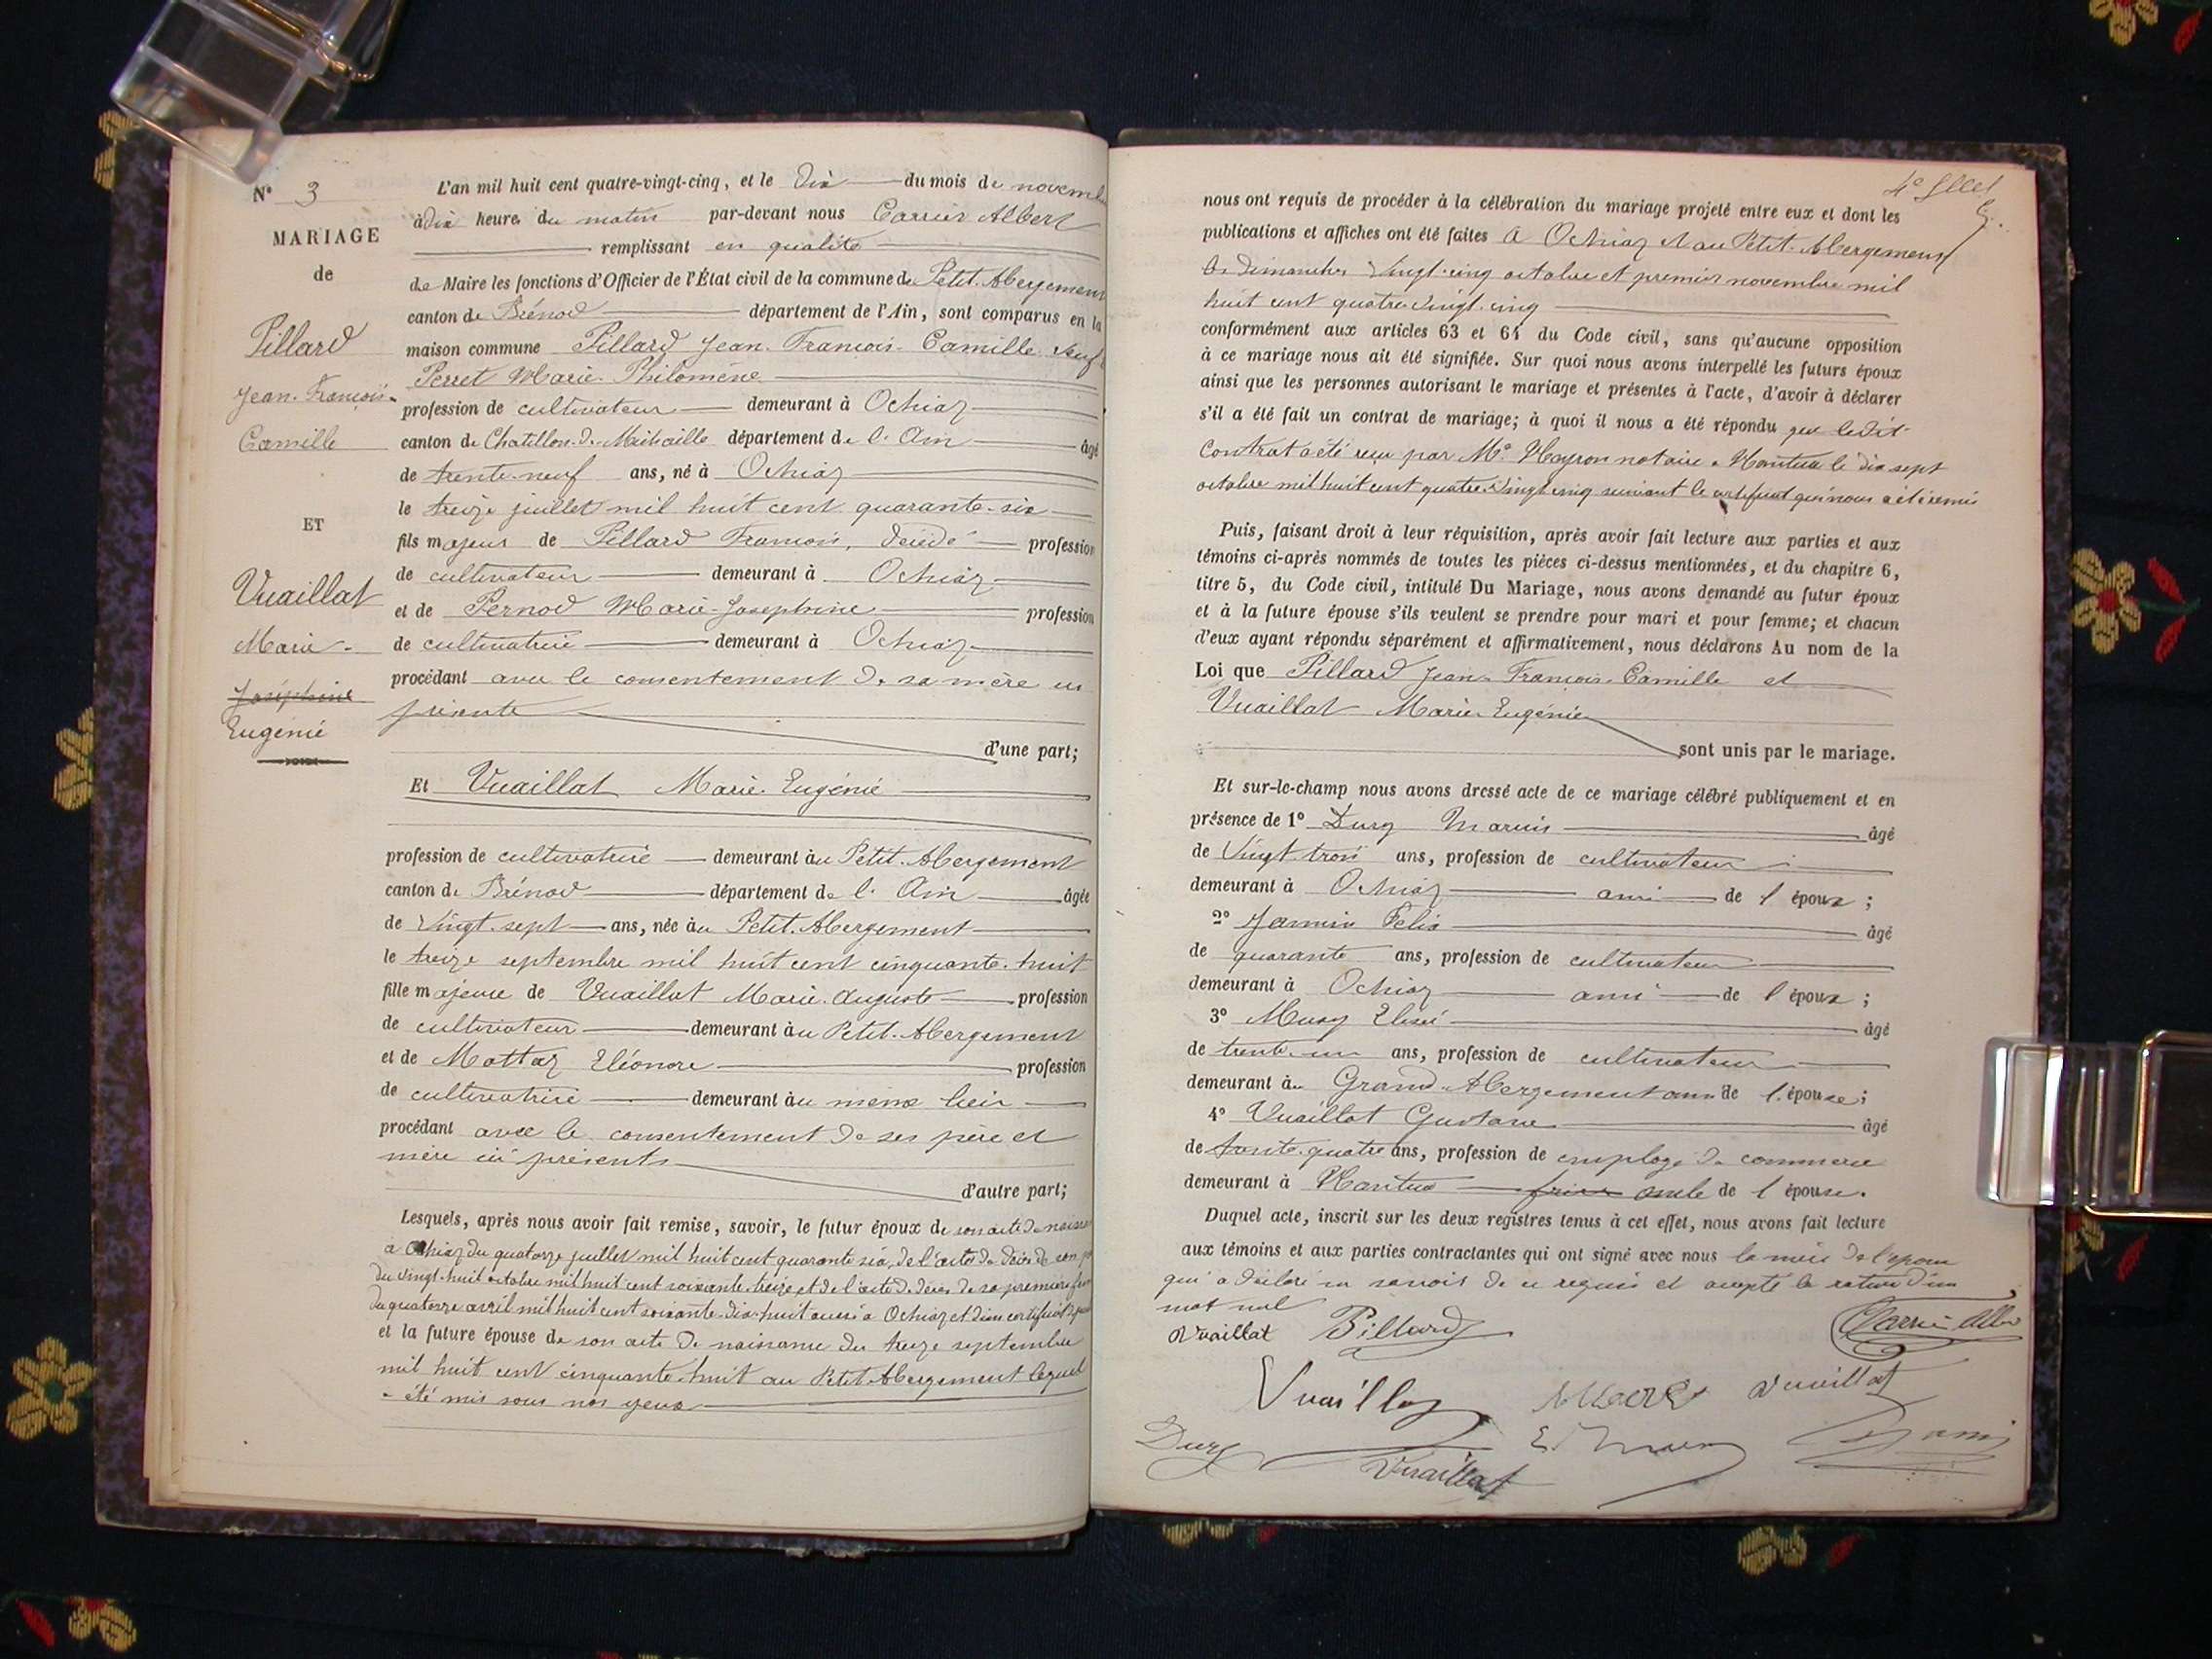 N° 3
MARIAGE
de
Pillard
Jean-François-
Camille
ET
Vuaillat
Marie-
Joséphine
Eugénie
L'an mil huit cent quatre-vingt-cinq, et le dix du mois de novemb
à dix heures du matin par-devant nous Carrier Albert
remplissant en qualité
de Maire les fonctions d'Officier de l'État civil de la commune de Petit-Abergement
canton de Brénod département de l'Ain, sont comparus en la
maison commune Pillard Jean-François-Camille veuf
Perret Marie-Philomène
profession de cultivateur demeurant à Ochiaz
canton de Chatillon-de-Michaille département de l'Ain âgé
de trente-neuf ans, né à Ochiaz
le treize juillet mil huit cent quarante-six
fils majeur de Pillard François, décédé profession
de cultivateur demeurant à Ochiaz
et de Pernod Marie-Josephine profession
de cultivatrice demeurant à Ochiaz
procédant avec le consentement de sa mère ici
présente
d'une part;
Et Vuaillat Marie-Eugénie
profession de cultivatrice demeurant au Petit-Abergement
canton de Brénod département de l'Ain âgée
de vingt-sept ans, née au Petit-Abergement
le treize septembre mil huit cent cinquante-huit
fille majeure de Vuaillat Marie-Auguste profession
de cultivateur demeurant au Petit-Abergement
et de Mottaz Eléonore profession
de cultivatrice demeurant au même lieu
procédant avec le consentement de ses père et
mère ici présents
d'autre part;
Lesquels, après nous avoir fait remise, savoir, le futur époux de son acte de naissa
à Ochiaz du quatorze juillet mil huit cent quarante six, de l'acte de décès de son p
du vingt-huit octobre mil huit cent soixante-treize et de l'acte de décès de sa première fem
du quatorze avril mil huit cent soixante-dix-huit aussi à Ochiaz et d'un certificat de
et la future épouse de son acte de naissance du treize septembre
mil huit cent cinquante-huit au Petit-Abergement lequel
a été mis sous nos yeux
4e
nous ont requis de procéder à la célébration du mariage projeté entre eux et dont les
publications et affiches ont été faites à Ochiaz et au Petit-Abergement
les dimanches vingt-cinq octobre et premier novembre mil
huit cent quatre-vingt-cinq
conformément aux articles 63 et 64 du Code civil, sans qu'aucune opposition
à ce mariage nous ait été signifiée. Sur quoi nous avons interpellé les futurs époux
ainsi que les personnes autorisant le mariage et présentes à l'acte, d'avoir à déclarer
s'il a été fait un contrat de mariage; à quoi il nous a été répondu que ledit
contrat a été reçu par Me notaire à Nantua le dix sept
octobre mil huit cent quatre-vingt cinq suivant le certificat qui nous a été remis
Puis, faisant droit à leur réquisition, après avoir fait lecture aux parties et aux
témoins ci-après nommés de toutes les pièces ci-dessus mentionnées, et du chapitre 6,
titre 5, du Code civil, intitulé Du Mariage, nous avons demandé au futur époux
et à la future épouse s'ils veulent se prendre pour mari et pour femme; et chacun
d'eux ayant répondu séparément et affirmativement, nous déclarons Au nom de la
Loi que Pillard Jean-François-Camille et
Vuaillat Marie-Eugénie
sont unis par le mariage.
Et sur-le-champ nous avons dressé acte de ce mariage célébré publiquement et en
présence de 1° Dury âgé
de vingt-trois ans, profession de cultivateur
demeurant à Ochiaz ami de l'époux;
2° Félix âgé
de quarante ans, profession de cultivateur
demeurant à Ochiaz ami de l'époux;
3° Elisée âgé
de trente-un ans, profession de cultivateur
demeurant au Grand-Abergement ami de l'épouse;
4° Vuaillat Gustave âgé
de trente-quatre ans, profession de employé de commerce
demeurant à Nantua frère oncle de l'épouse.
Duquel acte, inscrit sur les deux registres tenus à cet effet, nous avons fait lecture
aux témoins et aux parties contractantes qui ont signé avec nous la mère de l'époux
qui a déclaré ne savoir de ce requis et accepté la rature d'un
mot nul
Vuaillat Pillard Carrier Albe
Vuaillat Vuaillat
Dury
Vuaillat